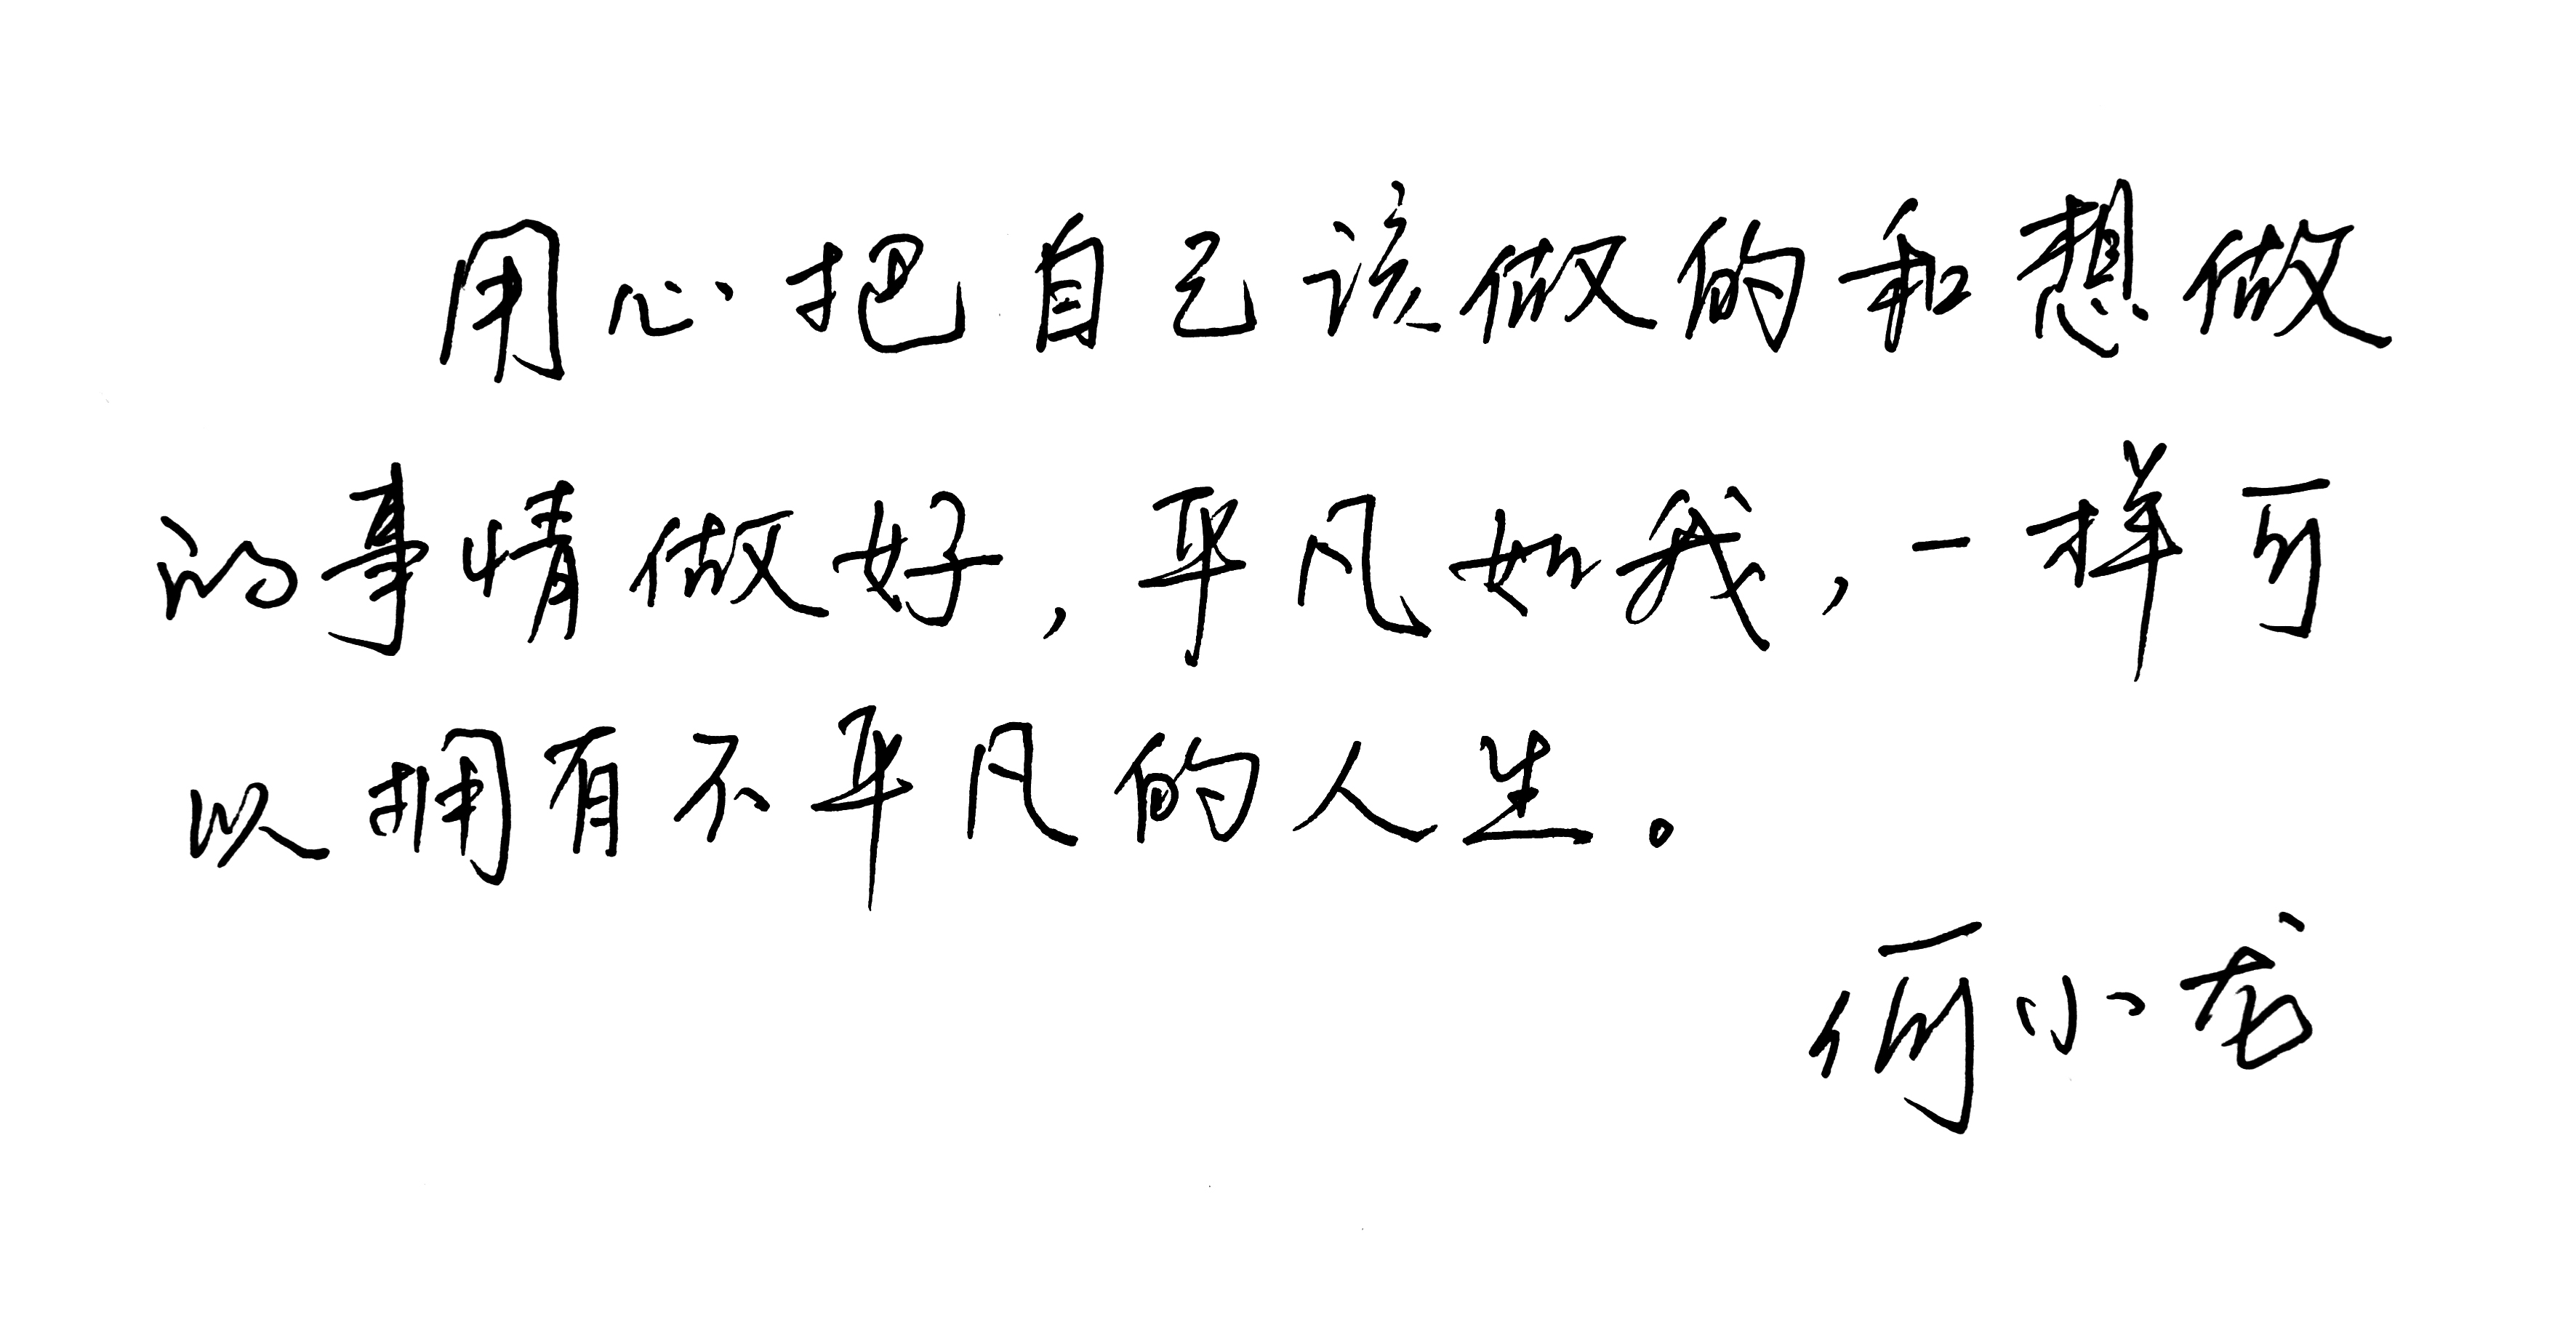 用心把自己该做的和想做
的事情做好,平凡如我,一样可
以拥有不平凡的人生。
何小龙